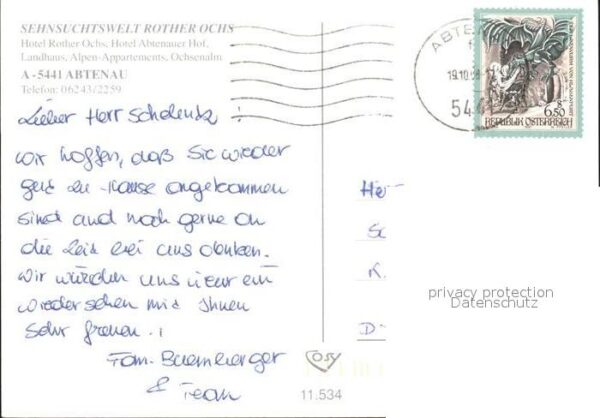 SEHNSUCHTSWELT ROTHER OCHS
Hotel Rother Ochs, Hotel Abtenauer Hof,
Landhaus, Alpen-Appartements, Ochsenalm
A - 5441 ABTENAU
Telefon: 06243/2259
Lieber Herr Schelenz !
wir hoffen, daß Sie wieder
gut zu Hause angekommen
sind und noch gerne an
die Zeit bei uns denken.
Wir würden uns über ein
wiedersehen mit Ihnen
sehr freuen !
Fam. Buemberger
& Team
COSY
11.534
ABTE
19.10.
544
6.50
REPUBLIK ÖSTERREICH
He
S
K.
D
privacy protection
Datenschutz